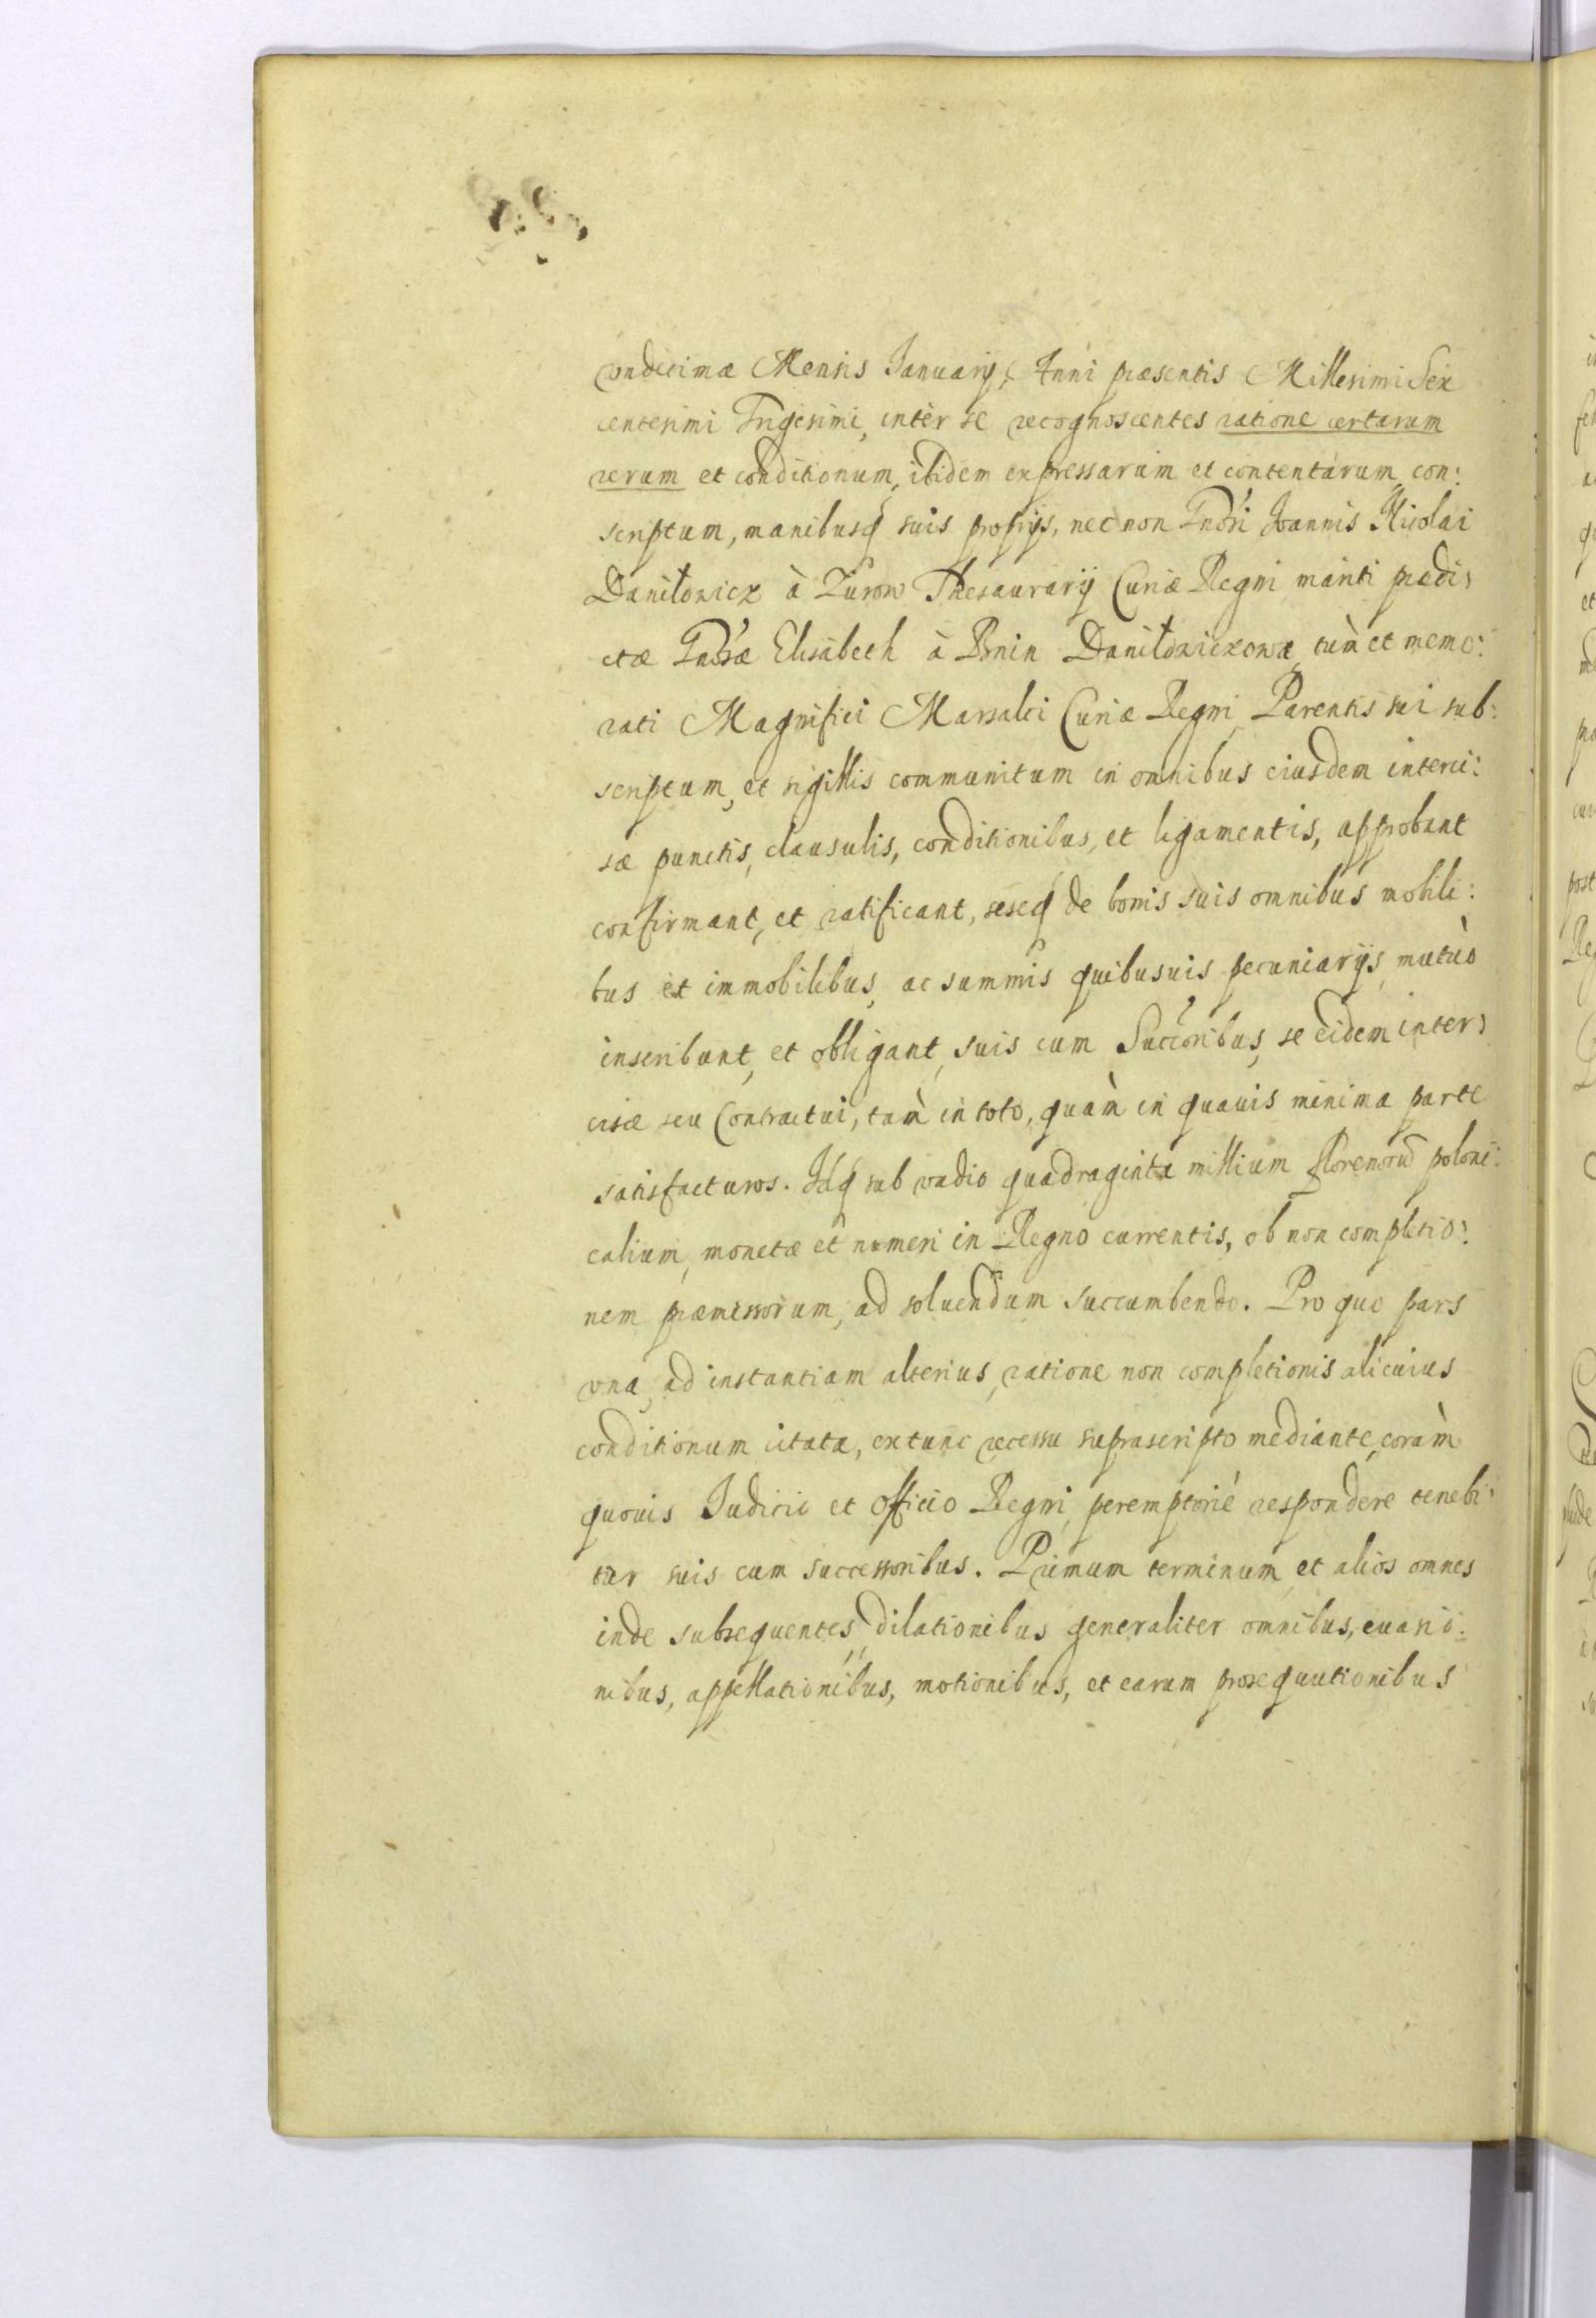 vndecimæ Mensis Januarij, Anni præsentis Millesimi Sex
centesimi Trigesimi, intèr se recognoscentes ratione certarum
rerum et conditionum, ibidem expressarum et contentarum, con:
scriptum, manibusq suis proprijs, nec non Gnõsi Joannis Nicolai
Daniłowicz à Zurow Thesaurarij Curiæ Regni mariti prædi:
ctæ Gnõsæ Elisabeth à Bnin Daniłowiczowa, tùm et memo:
rati Magnifici Marsalci Curiæ Regni, Parentis sui sub:
scriptum, et sigillis communitum in omnibus eiusdem interci:
sæ punctis, clausulis, conditionibus, et ligamentis, approbant
confirmant, et ratificant, seseq de bonis suis omnibus mobili:
bus et immobilibus, ac summis quibusuis pecuniarijs, mutuò
inscribunt, et obligant, suis cum Succoribus, se eidem inter:
cisæ seu Contractui, tam̀ in toto, quam̀ in quauis minima parte
satisfacturos. Idq sub vadio quadraginta millium florenorũ poloni:
calium, monetæ et numeri in Regno currentis, ob non completio:
nem præmissorum, ad soluendum succumbendo. Pro quo pars
vna, ad instantiam alterius, ratione non completionis alicuius
conditionum citata, extunc recessu suprascripto mediante, coram̀
quouis Judicii et Officio Regni, peremptoriè respondere tenebi:
tur suis cum successoribus. Primum terminum, et alios omnes
inde subsequentes, dilationibus generaliter omnibus, euasio:
nibus, appellationibus, motionibus, et earum prosequutionibus